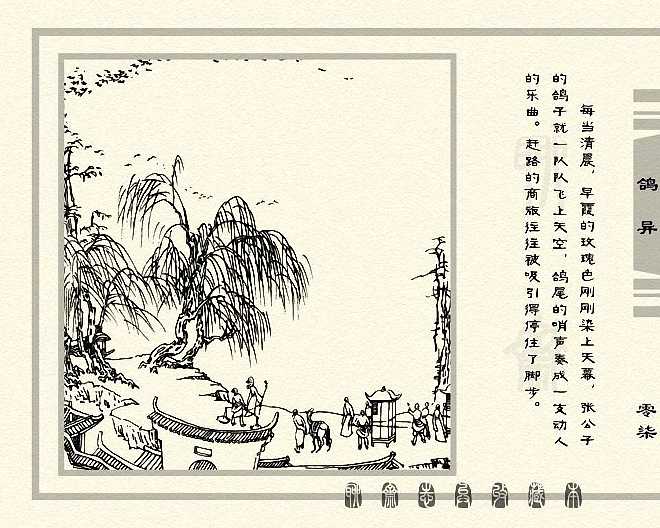 每当清晨，早霞的玫瑰色刚刚染上天幕，张公子
的鸽子就一队队飞上天空，鸽尾的哨声奏成一支动人
的乐曲。赶路的商旅往往被吸引得停住了脚步。
鸽异
零柒